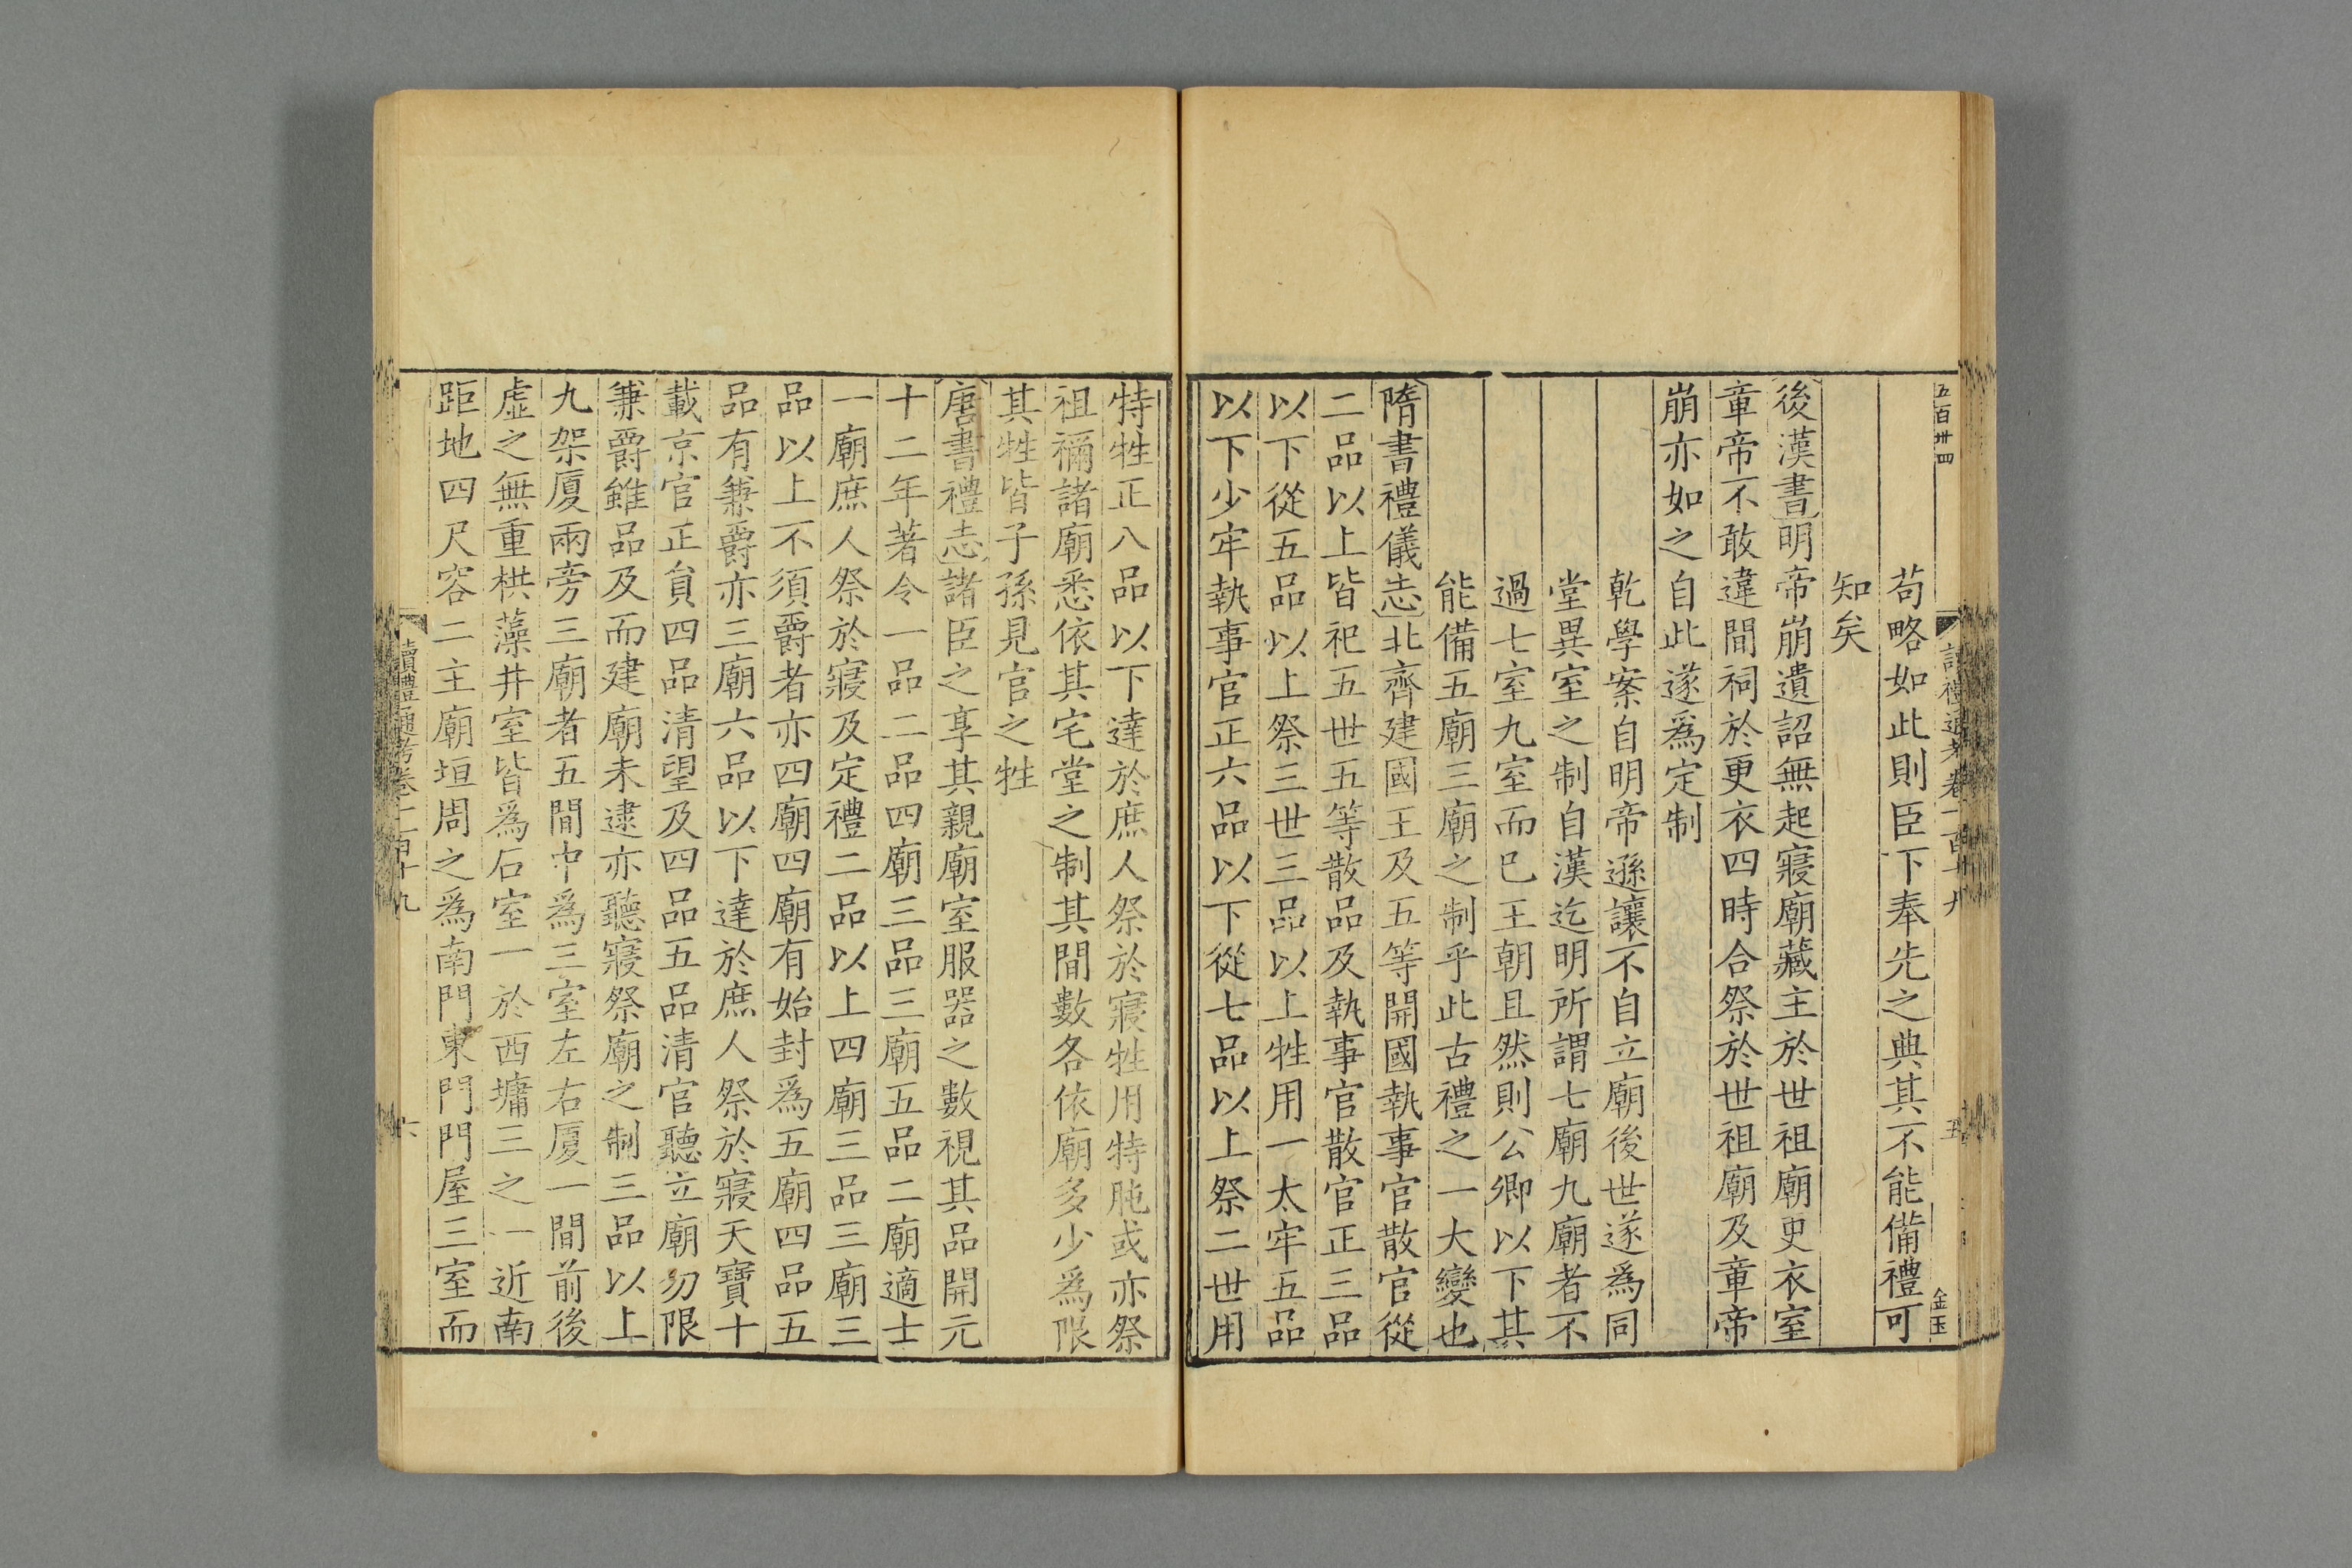 五百卅四
讀禮通考卷一百十九
五
金玉
苟略如此則臣下奉先之典其不能備禮可
知矣
後漢書明帝崩遺詔無起寢廟藏主於世祖廟更衣室
章帝不敢違間祠於更衣四時合祭於世祖廟及章帝
崩亦如之自此遂爲定制
乾學案自明帝遜讓不自立廟後世遂爲同
堂異室之制自漢迄明所謂七廟九廟者不
過七室九室而已王朝且然則公卿以下其
能備五廟三廟之制乎此古禮之一大變也
隋書禮儀志北齊建國王及五等開國執事官散官從
二品以上皆祀五世五等散品及執事官散官正三品
以下從五品以上祭三世三品以上牲用一太牢五品
以下少牢執事官正六品以下從七品以上祭二世用
特牲正八品以下達於庶人祭於寢牲用特肫或亦祭
祖禰諸廟悉依其宅堂之制其間數各依廟多少爲限
其牲皆子孫見官之牲
唐書禮志諸臣之享其親廟室服器之數視其品開元
十二年著令一品二品四廟三品三廟五品二廟適士
一廟庶人祭於寢及定禮二品以上四廟三品三廟三
品以上不須爵者亦四廟四廟有始封爲五廟四品五
品有兼爵亦三廟六品以下達於庶人祭於寢天寶十
載京官正員四品清望及四品五品清官聽立廟勿限
兼爵雖品及而建廟未逮亦聽寢祭廟之制三品以上
九架厦兩旁三廟者五間中爲三室左右厦一間前後
虛之無重栱藻井室皆爲石室一於西墉三之一近南
距地四尺容二主廟垣周之爲南門東門門屋三室而
讀禮通考卷一百十九
六